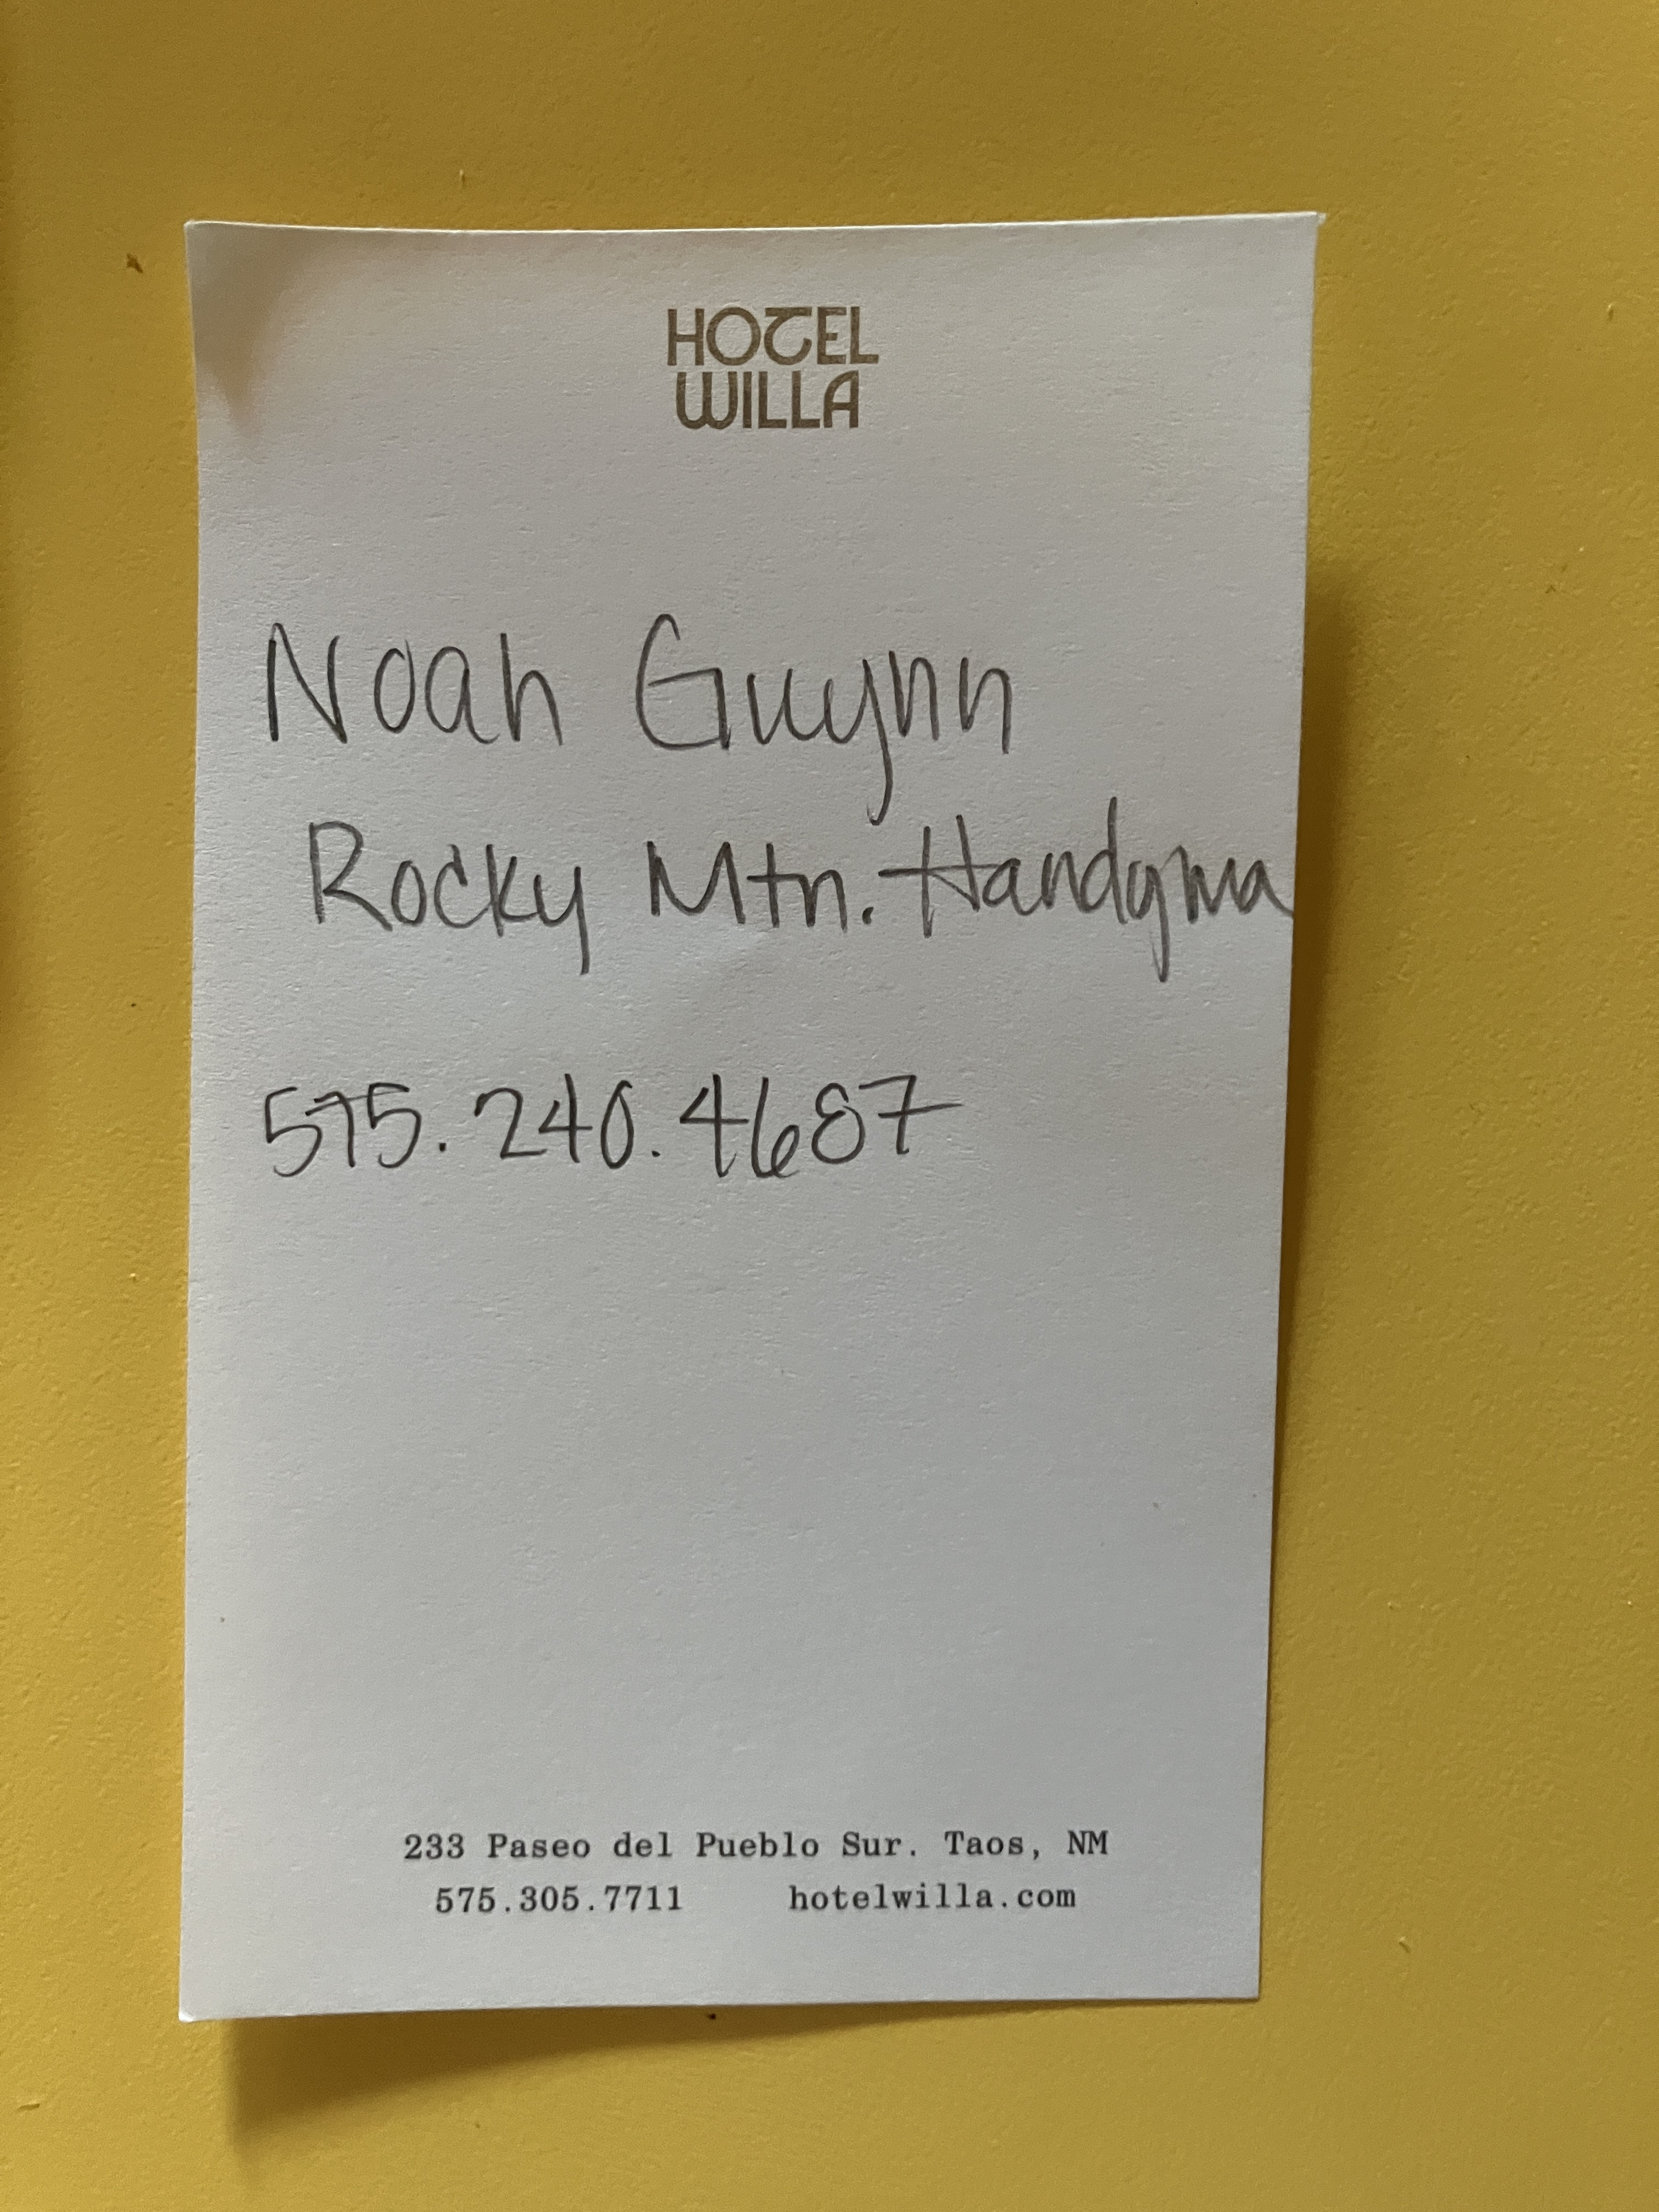 HOTEL
WILLA
Noah Gwynn
Rocky Mtn. Handyma
575.240.4687
233 Paseo del Pueblo Sur. Taos, NM
575.305.7711 hotelwilla.com